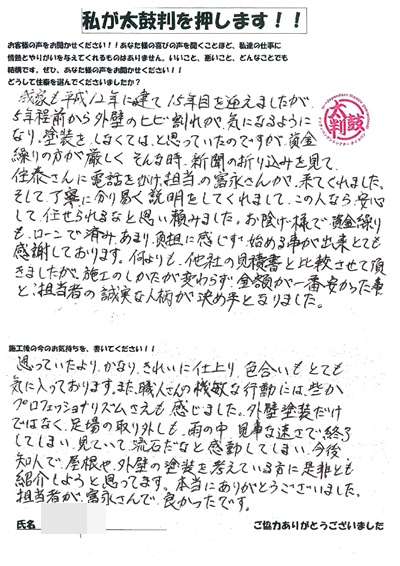 私が太鼓判を押します!!
お客様の声をお聞かせください!!あなた様の喜びの声を聞くことほど、私達の仕事に
情熱とやりがいを与えてくれるものはありません。いいこと、悪いこと、どんなことでも
結構です。ぜひ、あなた様の声をお聞かせください!!
どうして住泰を選んでくださいましたか?
我家も平成12年に建て15年目を迎えましたが、
5年程前から外壁のヒビ割れが、気になるように
なり、塗装をしなくては、と思っていたのですが、資金
繰りの方が厳しく そんな時、新聞の折り込みを見て、
住泰さんに電話をかけ、担当の富永さんが、来てくれました。
そして、丁寧に分り易く説明をしてくれまして、この人なら、安心
して、任せられるなと思い頼みました。お陰げ様で、資金繰り
も、ローンで済み、あまり、負担に感じず始める事が出来とても
感謝しております。何よりも、他社の見積書と比較させて頂
きましたが、施工のしかたが変わらず、金額が一番安かった事
と、担当者の誠実な人柄が決め手となりました。
太鼓判
施工後の今のお気持ちを、書いてください!!
思っていたより、かなり、きれいに仕上り、色合いもとても
気に入っております。また、職人さんの機敏な行動には、些か
プロフェッショナリズムさえも感じました。外壁塗装だけ
ではなく、足場の取り外しも、雨の中、見事な速さで終了
してしまい、見ていて、流石だなと感動してしまい、今後
知人で、屋根や、外壁の塗装を考えている方に是非とも
紹介しようと思ってます。本当にありがとうございました。
担当者が、富永さんで、良かったです。
氏名
ご協力ありがとうございました